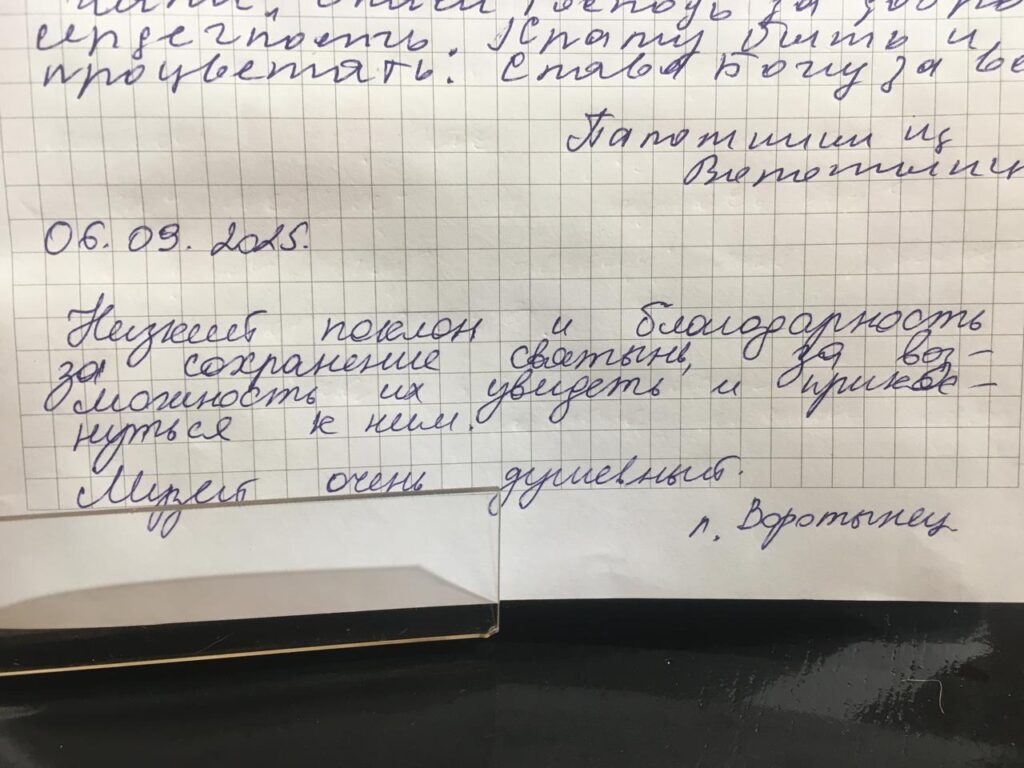 Спаси Господь за добро
сердечность. Храму быть и
процветать. Слава Богу за все
Паломники из
06.09.2025.
Низкий поклон и благодарность
за сохранение святынь, за воз-
можность их увидеть и прикос-
нуться к ним.
Музей очень душевный.
п. Воротынец